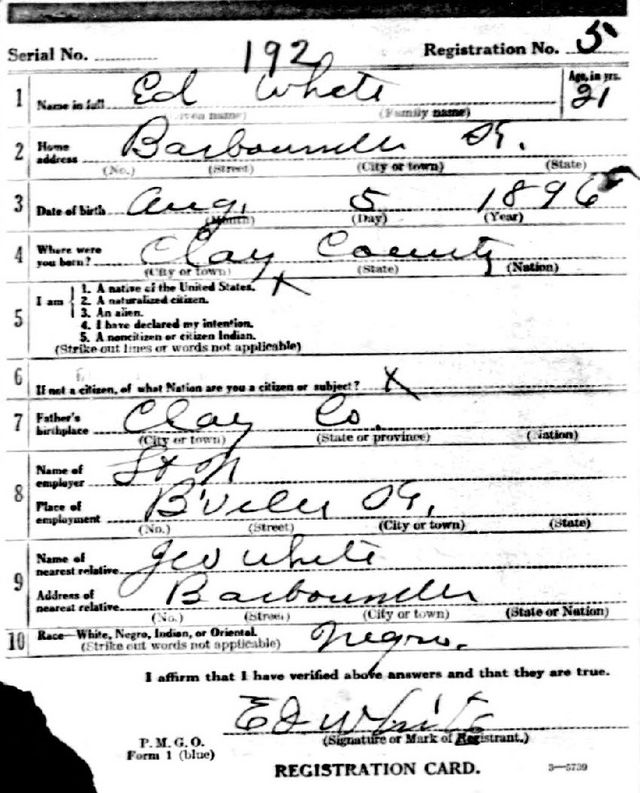 Serial No. 192 Registration No. 5
1 Name in full Ed White Age, in yrs. 21
(Given name) (Family name)
2 Home address Barbourville Ky.
(No.) (Street) (City or town) (State)
3 Date of birth Aug. 5 1896
(Month) (Day) (Year)
4 Where were you born? Clay County
(City or town) (State) (Nation)
5 I am
1. A native of the United States. X
2. A naturalized citizen.
3. An alien.
4. I have declared my intention.
5. A noncitizen or citizen Indian.
(Strike out lines or words not applicable)
6 If not a citizen, of what Nation are you a citizen or subject? X
7 Father's birthplace Clay Co.
(City or town) (State or province) (Nation)
8 Name of employer
Place of employment B'ville Ky.
(No.) (Street) (City or town) (State)
9 Name of nearest relative Geo White
Address of nearest relative Barbourville
(No.) (Street) (City or town) (State or Nation)
10 Race—White, Negro, Indian, or Oriental. Negro.
(Strike out words not applicable)
I affirm that I have verified above answers and that they are true.
Ed White
(Signature or Mark of Registrant.)
P. M. G. O.
Form 1 (blue)
REGISTRATION CARD.
3—5739